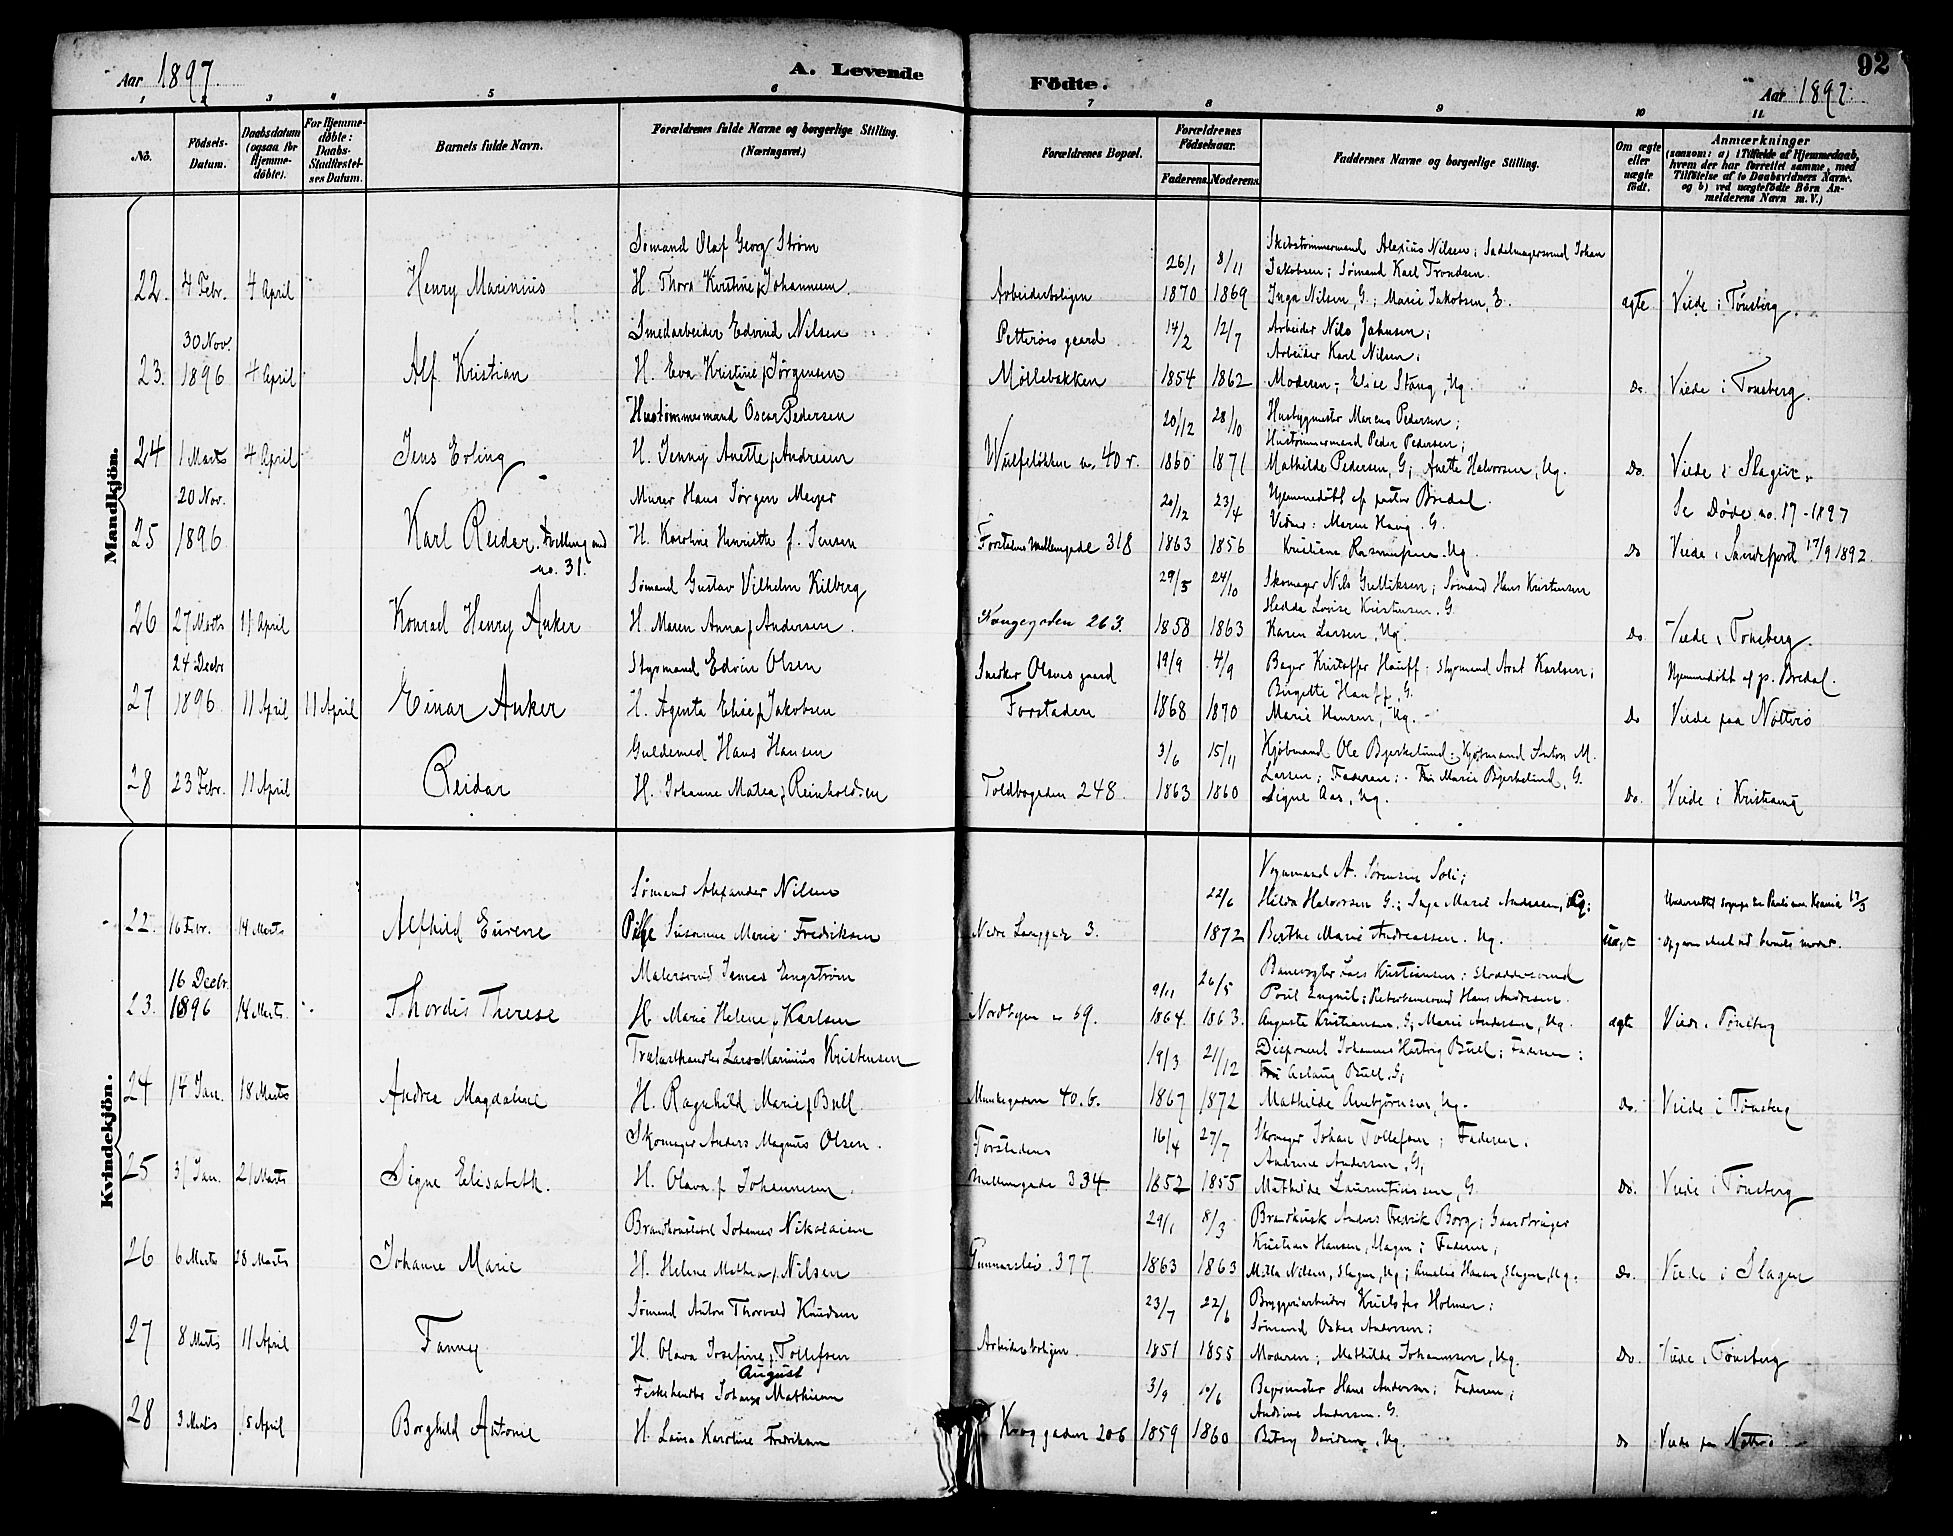 Aar 1897.
A. Levende
Födte.
92
Aar 1897.
1 2 3 4 5 6 7 8 9 10 11
No.
Födsels-Datum.
Daabsdatum (ogsaa for Hjemme-döbte).
For Hjemme-döbte: Daabs-Stadfæstel-ses Datum.
Barnets fulde Navn.
Forældrenes fulde Navne og borgerlige Stilling. (Næringsvei.)
Forældrenes Bopæl.
Forældrenes Födselsaar.
Faderens. Moderens.
Faddernes Navne og borgerlige Stilling.
Om ægte eller uægte födt.
Anmærkninger
(saasom: a) i Tilfælde af Hjemmedaab, hvem der har forrettet samme, med Tilföielse af to Daabsvidners Navne. og b) ved uægtefödte Börn An-melderens Navn m. V.)
Mandkjön.
Sømand Olaf Georg Strøm
26/1 8/11
Skibstømmermand Alexius Nilsen; Sadelmagersvend Johan
Jakobsen; Sømand Karl Trondsen.
22. 4 Febr. 4 April Henry Marinius H. Thora Kirstine f. Johannesen. Arbeiderboligen 1870 1869 Inga Nilsen, G.; Marie Jakobsen, G. ægte Viede i Tönsberg.
30 Nov.
Smedarbeider Edvind Nilsen
Petterøes gaard 14/2 12/7
Arbeider Nils Johnsen;
Arbeider Karl Nilsen;
23. 1896 4 April Alf Kristian H. Eva Kristine f. Jørgensen Møllebakken 1854 1862 Moderen; Elise Stang, Ug. Do Viede i Tønsberg.
Hustømmermand Oscar Pedersen
20/12 28/10
Husbygmester Marcus Pedersen;
Hustømmermand Peder Pedersen;
24 1 Marts 4 April Jens Erling H. Jenny Anette f. Andresen Wulfsløkken n. 40 r. 1860 1871 Mathilde Pedersen, G; Anette Halvorsen, Ug. Do. Viede i Slagen.
20 Nov.
Murer Hans Jørgen Meyer
20/12 23/4
Hjemmedøbt af pastor Bredal.
Vidner: Maren Haug. G.
Se Døde no. 17 - 1897
25 1896 Karl Reidar. Tvilling med H. Karoline Henriette f. Jensen Forstadens Mellemgade 318 1863 1856 Kristiane Rasmussen. Ug. Do Viede i Sandefjord 17/9 1892.
no. 31.
Sømand Gustav Vilhelm Kilberg
29/5 24/10
Skomager Nils Gulliksen; Sømand Hans Kristensen
Hedda Lovise Kristensen. G
26 27 Marts 11 April Konrad Henry Anker H. Maren Anna f. Andersen. Kongegaden 263. 1858 1863 Karen Larsen, Ug. Do Viede i Tønsberg.
24 Decbr
Styrmand Edvin Olsen
Snedker Olsens gaard 19/9 4/9
Bager Kristoffer Hauff; Styrmand Arnt Karlsen;
Birgette Hauff, G.
Hjemmedøbt af p. Bredal.
27 1896 11 April 11 April Einar Anker H. Agenta Elise f. Jakobsen Forstaden 1868 1870 Marie Hansen, Ug. Do Viede paa Nøtterø
Guldsmed Hans Hansen
3/6 15/11
Kjøbmand Ole Bjerkelund; Kjøbmand Anton M.
Larsen; Faderen; Fru Marie Bjerkelund, G.
28 23 Febr. 11 April Reidar H. Johanne Matea f. Reinholdsen Toldbogaden 248. 1863 1860 Signe Aas, Ug. Do. Viede i Kristiania
Kvindekjön.
Sømand Alexander Nilsen
22/6
Vognmand A. Sørensen Soli;
Hilda Halvorsen G.; Inga Marie Andersen, Ug;
22. 16 Febr. 14 Marts Alfhild Eurene Pige Susanne Marie Fredriksen Nedre Langgade 3. 1872 Berthe Marie Andreassen. Ug. Uægte Opgaven meddelt ved barnets moder.
16 Decbr.
Malersvend James Engstrøm
9/11 26/5
Banevogter Lars Kristiansen; Skræddersvend
Poul Engnil; Reberbanesvend Hans Andersen.
23. 1896 14 Marts. Thordis Therese H. Marie Helene f. Karlsen Nordbyen n 69. 1864. 1863. Auguste Kristiansen, G; Marie Andersen, Ug. ægte Viede i Tönsberg
Trælasthandler Lars Marinius Kristensen
19/3 21/12
Disponent Johannes Hartvig Bull; Faderen;
Fru Aslaug Bull, G;
24 14 Jan. 18 Marts Andrea Magdalene H. Ragnhild Marie f. Bull Munkegaden 40.b. 1867 1872 Mathilde Anbjörnsen, Ug. Do. Viede i Tønsberg
Skomager Anders Magnus Olsen.
Forstadens 16/4 27/7
Skomager Johan Tollefsen; Faderen.
Andrine Andersen, G,
25 31 Jan. 21 Marts Signe Elisabeth. H. Olava f Johannesen. Mellemgade 334. 1852 1855 Mathilde Laurentiussen, G. Do. Viede i Tønsberg
Brandkonstabel Johannes Nikolaisen
29/1 8/3
Brandkusk Anders Fredrik Borg; Gaardbruger
Kristian Hansen, Slagen; Faderen;
26 6 Marts 28 Marts Johanne Marie H. Helene Mathea f. Nilsen Gunnarsbö. 377. 1863 1863 Milla Nilsen, Slagen, Ug; Amalie Hansen, Slagen, Ug. Do. Viede i Slagen
Sømand Anton Thorvald Knudsen
23/7 22/6
Bryggeriarbeider Kristoffer Holmen;
Sömand Oskar Andersen;
27 8 Marts 11 April Fanny H. Olava Josefine f. Tollefsen Arbeiderboligen. 1851 1855 Moderen; Mathilde Johannesen, Ug. Do. Viede i Tønsberg
August
Fiskehandler Johan Mathisen
3/9 10/6
Bagermester Hans Andersen; Faderen;
Andrine Andersen. G.
28 3 Marts 15 April Borghild Antonie H. Laura Karoline Fredriksen Kroggaden 206 1859 1860 Betsy Davidsen, Ug. do Viede paa Nøtterø